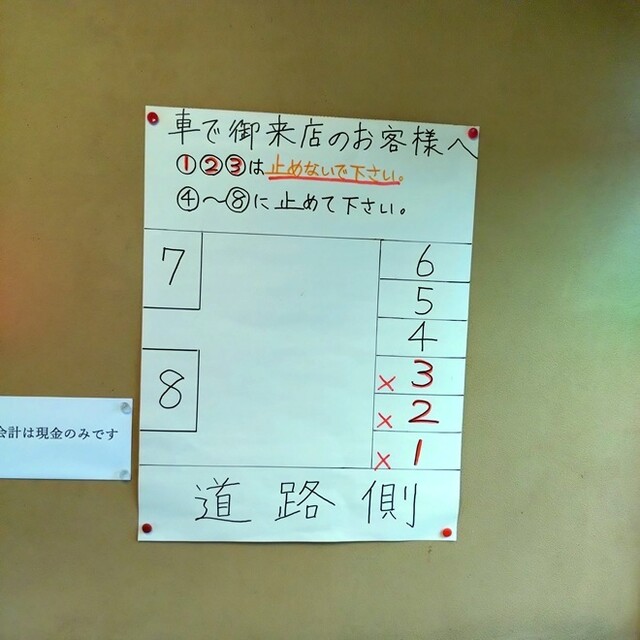 車で御来店のお客様へ
①②③は止めないで下さい。
④〜⑧に止めて下さい。
7
8
6
5
4
× 3
× 2
× 1
道路側
会計は現金のみです